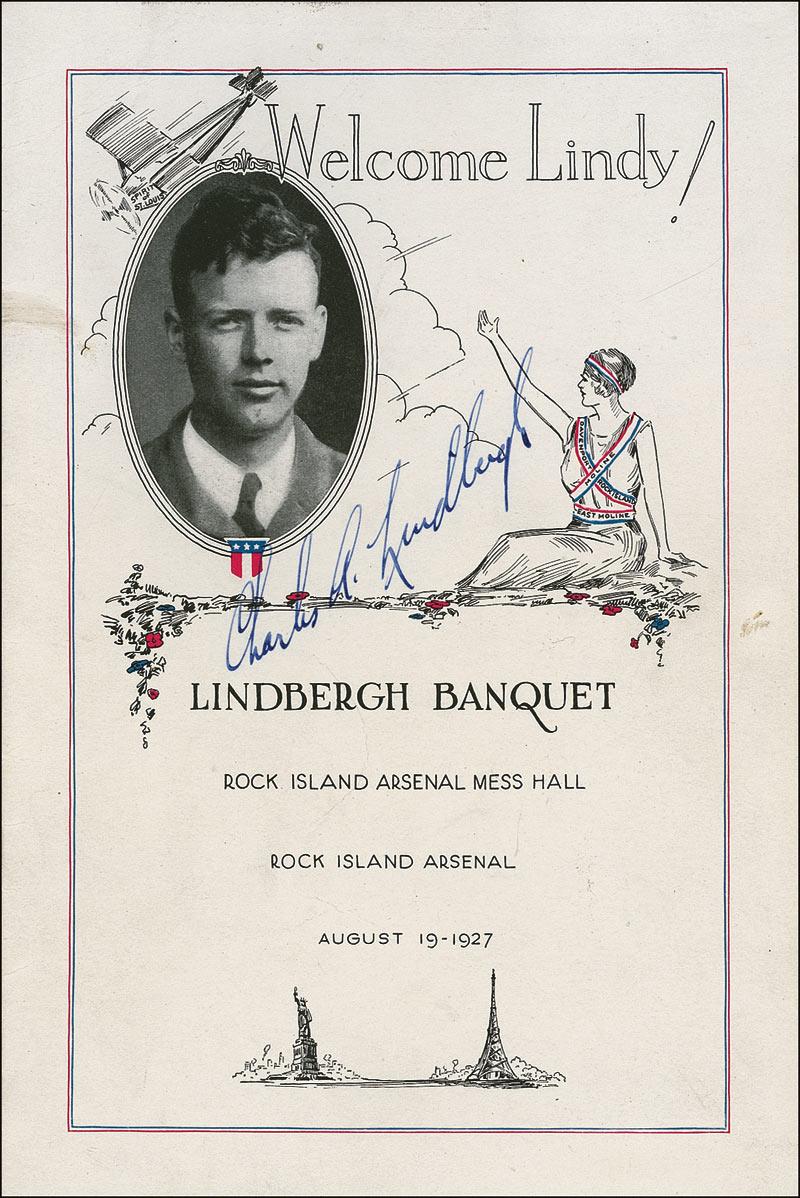 Welcome Lindy!
SPIRIT
OF
ST. LOUIS
DAVENPORT
MOLINE
ROCK ISLAND
EAST MOLINE
Charles A. Lindbergh
LINDBERGH BANQUET
ROCK ISLAND ARSENAL MESS HALL
ROCK ISLAND ARSENAL
AUGUST 19-1927